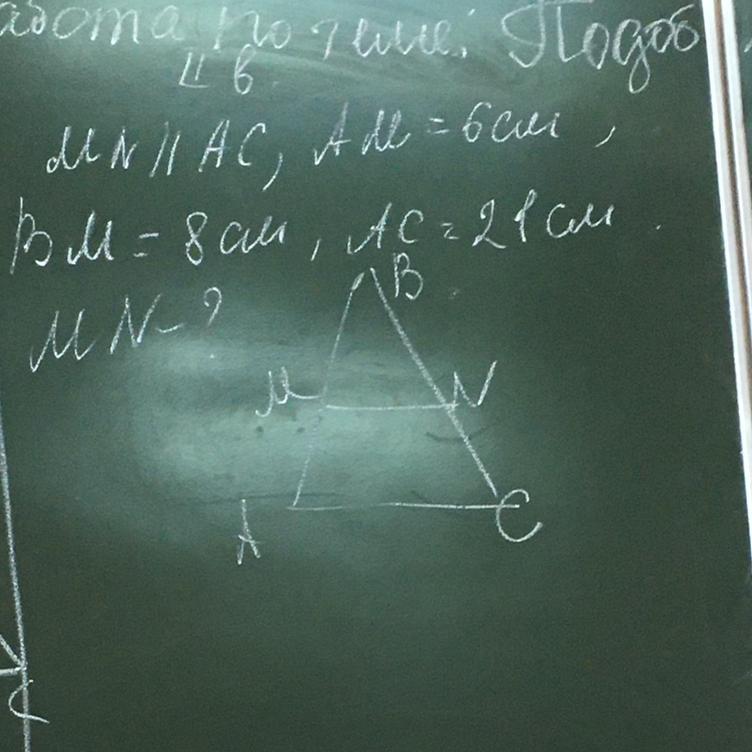 абота по теме: Подоб
II в.
MN || AC, AM = 6 см,
BM = 8 см, AC = 21 см.
MN - ?
B
M N
A C
C